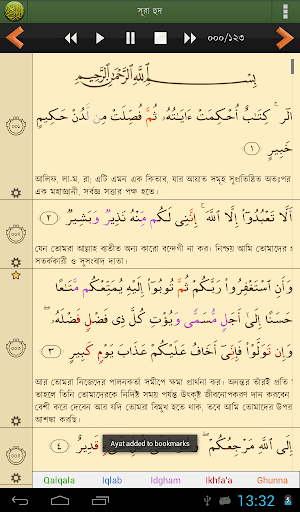 সূরা হুদ
০০০/১২৩
بِسْمِ ٱللَّهِ ٱلرَّحْمَٰنِ ٱلرَّحِيمِ
الٓر ۚ كِتَٰبٌ أُحْكِمَتْ ءَايَٰتُهُۥ ثُمَّ فُصِّلَتْ مِن لَّدُنْ حَكِيمٍ
خَبِيرٍ ١
আলিফ, লা-ম, রা; এটি এমন এক কিতাব, যার আয়াত সমূহ সুপ্রতিষ্ঠিত অতঃপর
এক মহাজ্ঞানী, সর্বজ্ঞ সত্তার পক্ষ হতে।
أَلَّا تَعْبُدُوٓا۟ إِلَّا ٱللَّهَ ۚ إِنَّنِى لَكُم مِّنْهُ نَذِيرٌ وَبَشِيرٌ ٢
যেন তোমরা আল্লাহ ব্যতীত অন্য কারো বন্দেগী না কর। নিশ্চয় আমি তোমাদের
সতর্ককারী ও সুসংবাদ দাতা।
وَأَنِ ٱسْتَغْفِرُوا۟ رَبَّكُمْ ثُمَّ تُوبُوٓا۟ إِلَيْهِ يُمَتِّعْكُم مَّتَٰعًا
حَسَنًا إِلَىٰٓ أَجَلٍ مُّسَمًّى وَيُؤْتِ كُلَّ ذِى فَضْلٍ فَضْلَهُۥ ۖ
وَإِن تَوَلَّوْا۟ فَإِنِّىٓ أَخَافُ عَلَيْكُمْ عَذَابَ يَوْمٍ كَبِيرٍ ٣
আর তোমরা নিজেদের পালনকর্তা সমীপে ক্ষমা প্রার্থনা কর। অনন্তর তাঁরই প্রতি
তাহলে তিনি তোমাদেরকে নির্দিষ্ট সময় পর্যন্ত উৎকৃষ্ট জীবনোপকরণ দান করবেন
বেশী করে দেবেন আর যদি তোমরা বিমুখ হতে থাক, তবে আমি তোমাদের উপর
আশঙ্কা করছি।
Ayat added to bookmarks
إِلَى ٱللَّهِ مَرْجِعُكُمْ ۖ قَدِيرٌ ٤
Qalqala Iqlab Idgham Ikhfa'a Ghunna
13:32